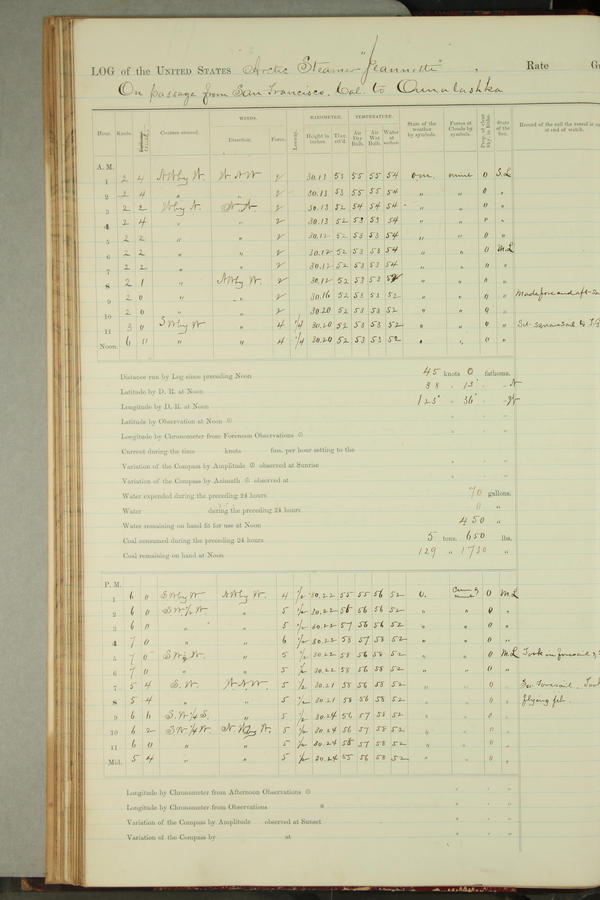 LOG of the UNITED STATES Arctic Steamer "Jeannette". Rate
On passage from San Francisco, Cal. to Ounalashka
Hour. Knots. Courses steered. WINDS. Direction. Force. Leeway. BAROMETER. Height in inches. Ther. att'd. TEMPERATURE. Air Dry Bulb. Air Wet Bulb. Water at surface. State of the weather by symbols. Forms of Clouds by symbols. State of the Sea. Record of the sail the vessel is
at end of watch.
A. M.
1 2 4 2 30.13 53 55 55 54 0
2 2 4 " " 2 30.13 53 55 55 54 " " 0 "
3 2 2 2 30.13 52 54 54 54 " " 0 "
4 2 4 " " 2 30.13 52 53 53 54 " "
5 2 2 " " 2 30.12 52 53 53 54 " " 0 "
6 2 2 " " 2 30.12 52 53 53 54 " " 0 M.L
7 2 2 " " 2 30.12 52 53 53 54 " " 0 "
8 2 1 " 2 30.12 52 53 53 52 " " 0 "
9 2 0 " " 2 30.16 52 53 53 52 " " 0 " Made fore and aft
10 2 0 " " 2 30.20 52 53 53 52 " " 0 "
11 3 0 " 4 1/4 30.20 52 53 53 52 " " 0 " Set squaresail
Noon. 6 0 " " 4 1/4 30.20 52 53 53 52 " " 0 "
Distance run by Log since preceding Noon 45 knots 0 fathoms.
Latitude by D. R. at Noon 38 ° 15 ' N
Longitude by D. R. at Noon 125 ° 36 ' W
Latitude by Observation at Noon
Longitude by Chronometer from Forenoon Observations
Current during the time knots fms. per hour setting to the
Variation of the Compass by Amplitude observed at Sunrise
Variation of the Compass by Azimuth observed at
Water expended during the preceding 24 hours 70 gallons.
Water during the preceding 24 hours 0 "
Water remaining on hand fit for use at Noon 450 "
Coal consumed during the preceding 24 hours 5 tons. 650 lbs.
Coal remaining on hand at Noon 129 " 1730 "
P. M.
1 6 0 4 1/2 30.22 55 55 56 52 0 M.L
2 6 0 " 5 1/2 30.22 56 56 56 52 " " 0 "
3 6 0 " " 5 1/2 30.22 57 56 56 52 " " 0 "
4 7 0 " " 6 1/2 30.22 58 57 58 52 " " 0 "
5 7 0 " 5 1/2 30.22 58 56 58 52 " " 0 M.L Took in foresail
6 7 0 " " 5 1/2 30.22 58 56 58 52 " " 0 "
7 5 4 S.W. 5 1/2 30.21 58 56 58 52 " " 0 "
8 5 4 " " 5 1/2 30.21 58 56 58 52 " " 0 " flying jib.
9 6 6 S.W 1/4 S. " 5 1/2 30.24 56 57 58 52 " " 0 "
10 6 2 SW 1/4 W 5 1/2 30.24 56 57 58 52 " " 0 "
11 6 0 " " 5 1/2 30.24 55 57 58 52 " " 0 "
Mid. 5 4 " " 5 1/2 30.24 55 56 58 52 " " 0 "
Longitude by Chronometer from Afternoon Observations
Longitude by Chronometer from Observations
Variation of the Compass by Amplitude observed at Sunset
Variation of the Compass by at